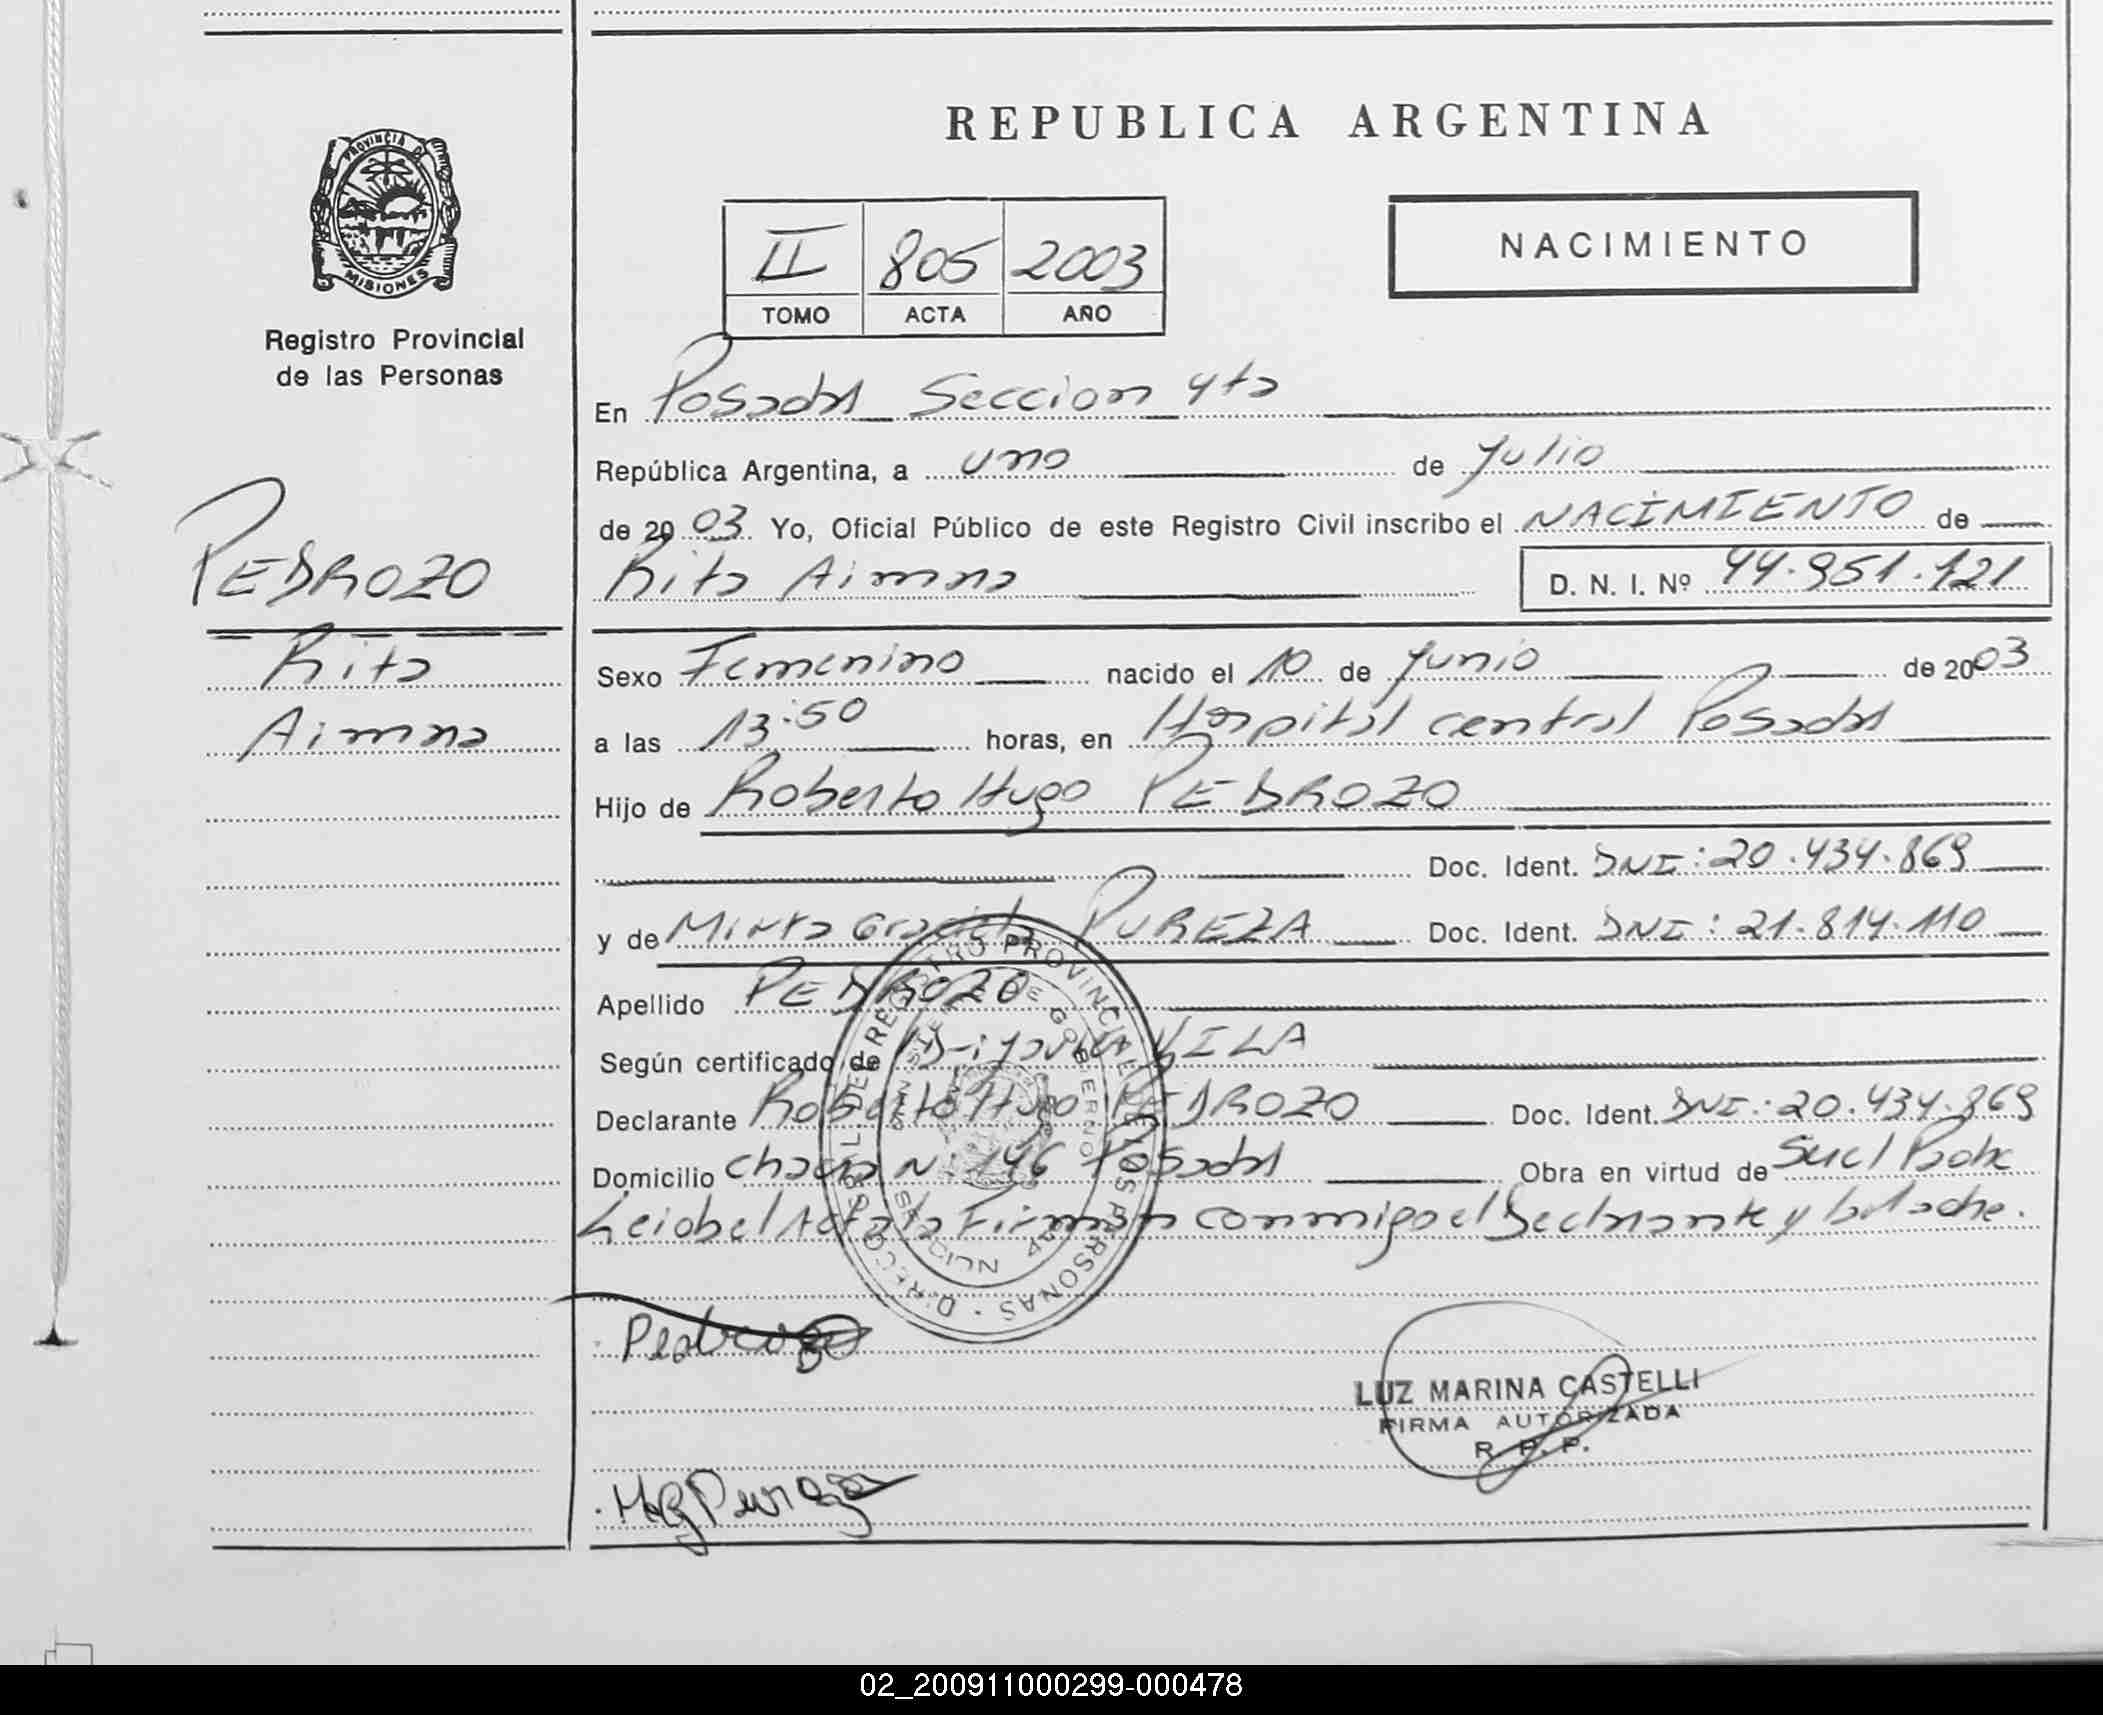 REPUBLICA ARGENTINA
PROVINCIA DE
MISIONES
Registro Provincial
de las Personas
II 805 2003
TOMO ACTA AÑO
NACIMIENTO
En Posadas Seccion 4ta
República Argentina, a uno de Julio
de 2003 Yo, Oficial Público de este Registro Civil inscribo el NACIMIENTO de
PEDROZO
Rita Aimna
Rita Aimna D. N. I. Nº 44.951.121
Sexo Femenino nacido el 10 de Junio de 2003
a las 13:50 horas, en Hospital central Posadas
Hijo de Roberto Hugo PEDROZO
Doc. Ident. DNI: 20.434.869
y de Mirta Graciela PUREZA Doc. Ident. DNI: 21.814.110
Apellido PEDROZO
Según certificado de
Declarante Roberto Hugo PEDROZO Doc. Ident. DNI: 20.434.869
Domicilio chacra N 146 Posadas Obra en virtud de
Leiobel Acta la Firman conmigo el Declarante y la Madre.
Pedrozo
LUZ MARINA CASTELLI
FIRMA AUTORIZADA
R. P. P.
MGPureza
02_200911000299-000478